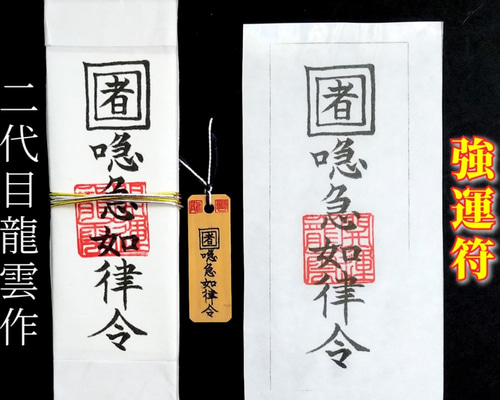 強運符
者
喼急如律令
者
喼急如律令
者
喼急如律令
二代目龍雲作